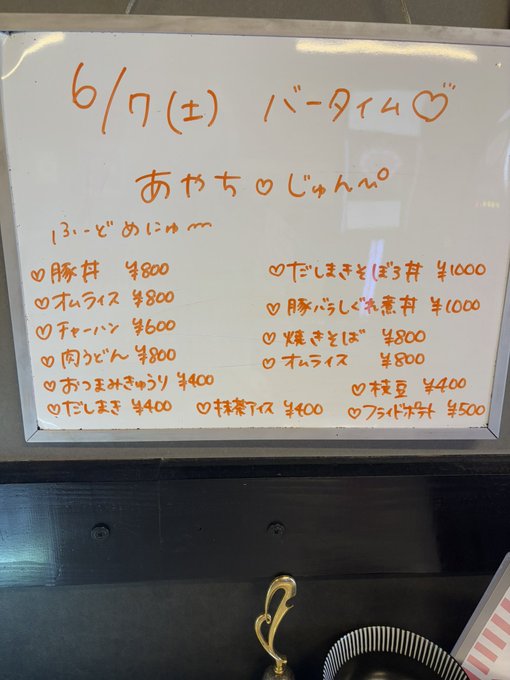 6/7(土) バータイム♡
あやち♡じゅんぺ
ふーどめにゅ〜
♡豚丼 ¥800
♡オムライス ¥800
♡チャーハン ¥600
♡肉うどん ¥800
♡おつまみきゅうり ¥400
♡だしまき ¥400
♡抹茶アイス ¥400
♡だしまきそぼろ丼 ¥1000
♡豚バラしぐれ煮丼 ¥1000
♡焼きそば ¥800
♡オムライス ¥800
♡枝豆 ¥400
♡フライドポテト ¥500